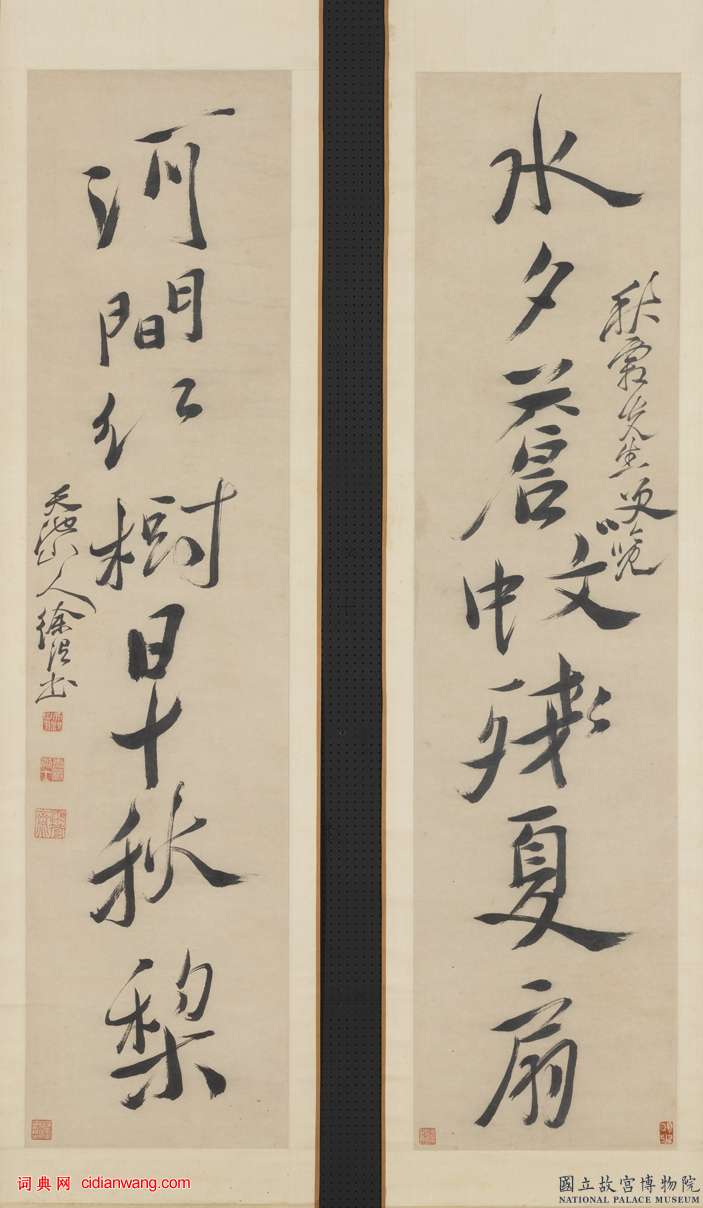 水夕蒼蚊殘夏扇
秋先生覽
河間紅樹早秋梨
天池山人徐渭書
词典网 cidianwang.com
國立故宮博物院
NATIONAL PALACE MUSEUM